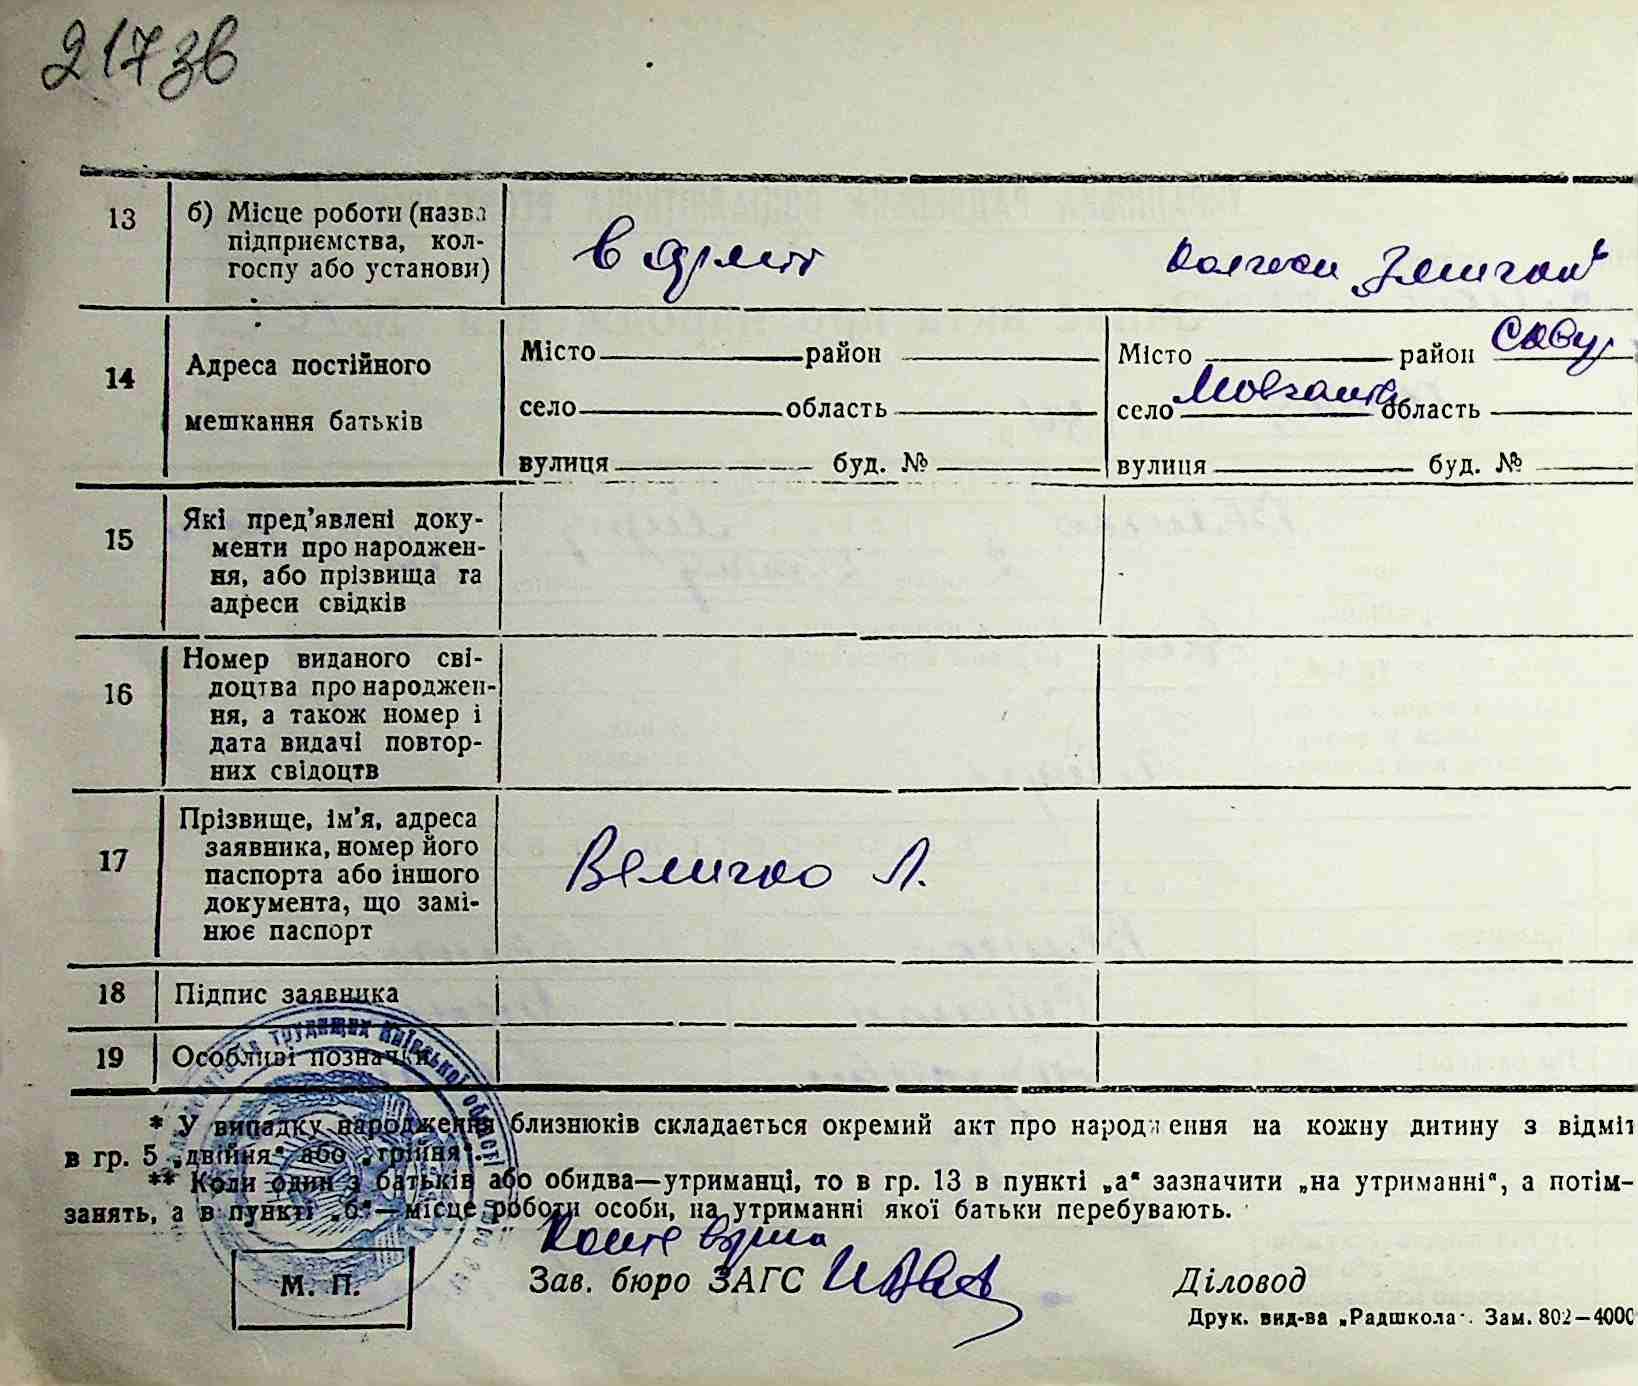 217 зв
13 б) Місце роботи (назва
підприємства, кол-
госпу або установи)
в армії
колгосп
14 Адреса постійного
мешкання батьків
Місто район
село область
вулиця буд. №
Місто район Савур
село Мовчанів область
вулиця буд. №
15 Які пред'явлені доку-
менти про народжен-
ня, або прізвища та
адреси свідків
16 Номер виданого сві-
доцтва про народжен-
ня, а також номер і
дата видачі повтор-
них свідоцтв
17 Прізвище, ім'я, адреса
заявника, номер його
паспорта або іншого
документа, що замі-
нює паспорт
Величко Л.
18 Підпис заявника
19 Особливі позначки
трудящих Київської області
* У випадку народження близнюків складається окремий акт про народження на кожну дитину з відміт
в гр. 5 „двійня" або „трійня".
** Коли один з батьків або обидва—утриманці, то в гр. 13 в пункті „а" зазначити „на утриманні", а потім-
занять, а в пункті „б"—місце роботи особи, на утриманні якої батьки перебувають.
М. П.
Зав. бюро ЗАГС
Діловод
Друк. вид-ва „Радшкола". Зам. 802—4000